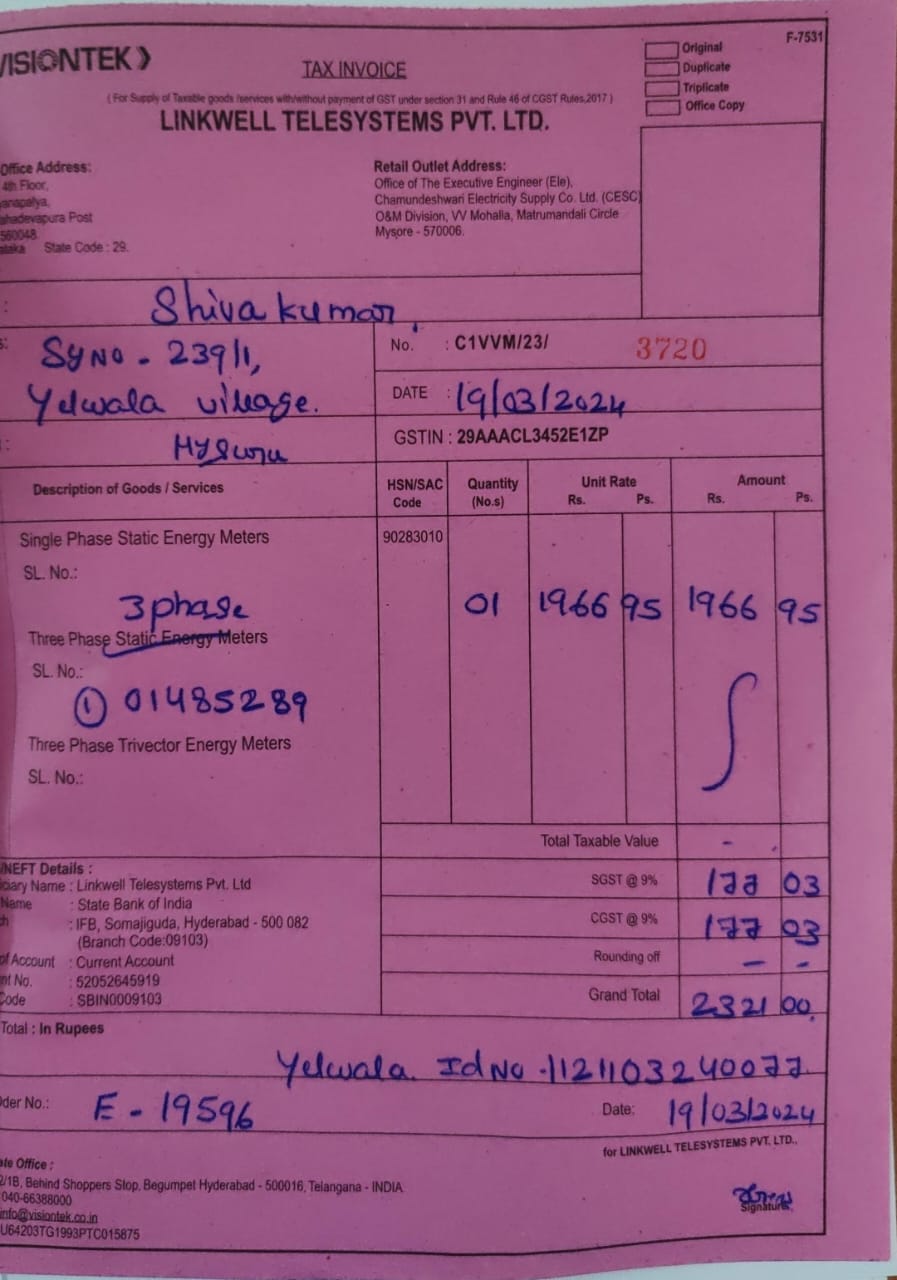 VISIONTEK
F-7531
TAX INVOICE
Original
Duplicate
Triplicate
Office Copy
( For Supply of Taxable goods /services with/without payment of GST under section 31 and Rule 46 of CGST Rules,2017 )
LINKWELL TELESYSTEMS PVT. LTD.
Office Address:
4th Floor,
anapalya,
ahadevapura Post
560048.
ataka State Code : 29.
Retail Outlet Address:
Office of The Executive Engineer (Ele),
Chamundeshwari Electricity Supply Co. Ltd. (CESC)
O&M Division, VV Mohalla, Matrumandali Circle
Mysore - 570006.
: Shiva kumar
s: SyNo - 239/1,
Yelwala village.
: Mysuru
No. : C1VVM/23/ 3720
DATE : 19/03/2024
GSTIN : 29AAACL3452E1ZP
Description of Goods / Services HSN/SAC Code Quantity (No.s) Unit Rate Rs. Ps. Amount Rs. Ps.
Single Phase Static Energy Meters 90283010
SL. No.:
3 phase 01 1966 95 1966 95
Three Phase Static Energy Meters
SL. No.:
① 01485289
Three Phase Trivector Energy Meters
SL. No.:
Total Taxable Value -
SGST @ 9% 177 03
CGST @ 9% 177 03
Rounding off - -
Grand Total 2321 00
/NEFT Details :
ciary Name : Linkwell Telesystems Pvt. Ltd
Name : State Bank of India
h : IFB, Somajiguda, Hyderabad - 500 082
(Branch Code:09103)
of Account : Current Account
nt No. : 52052645919
Code : SBIN0009103
Total : In Rupees
Yelwala. Id No - 1121103240077
der No.: E - 19596 Date: 19/03/2024
for LINKWELL TELESYSTEMS PVT. LTD.,
ate Office :
2/1B, Behind Shoppers Stop, Begumpet Hyderabad - 500016, Telangana - INDIA
040-66388000
info@visiontek.co.in
U64203TG1993PTC015875
Signature